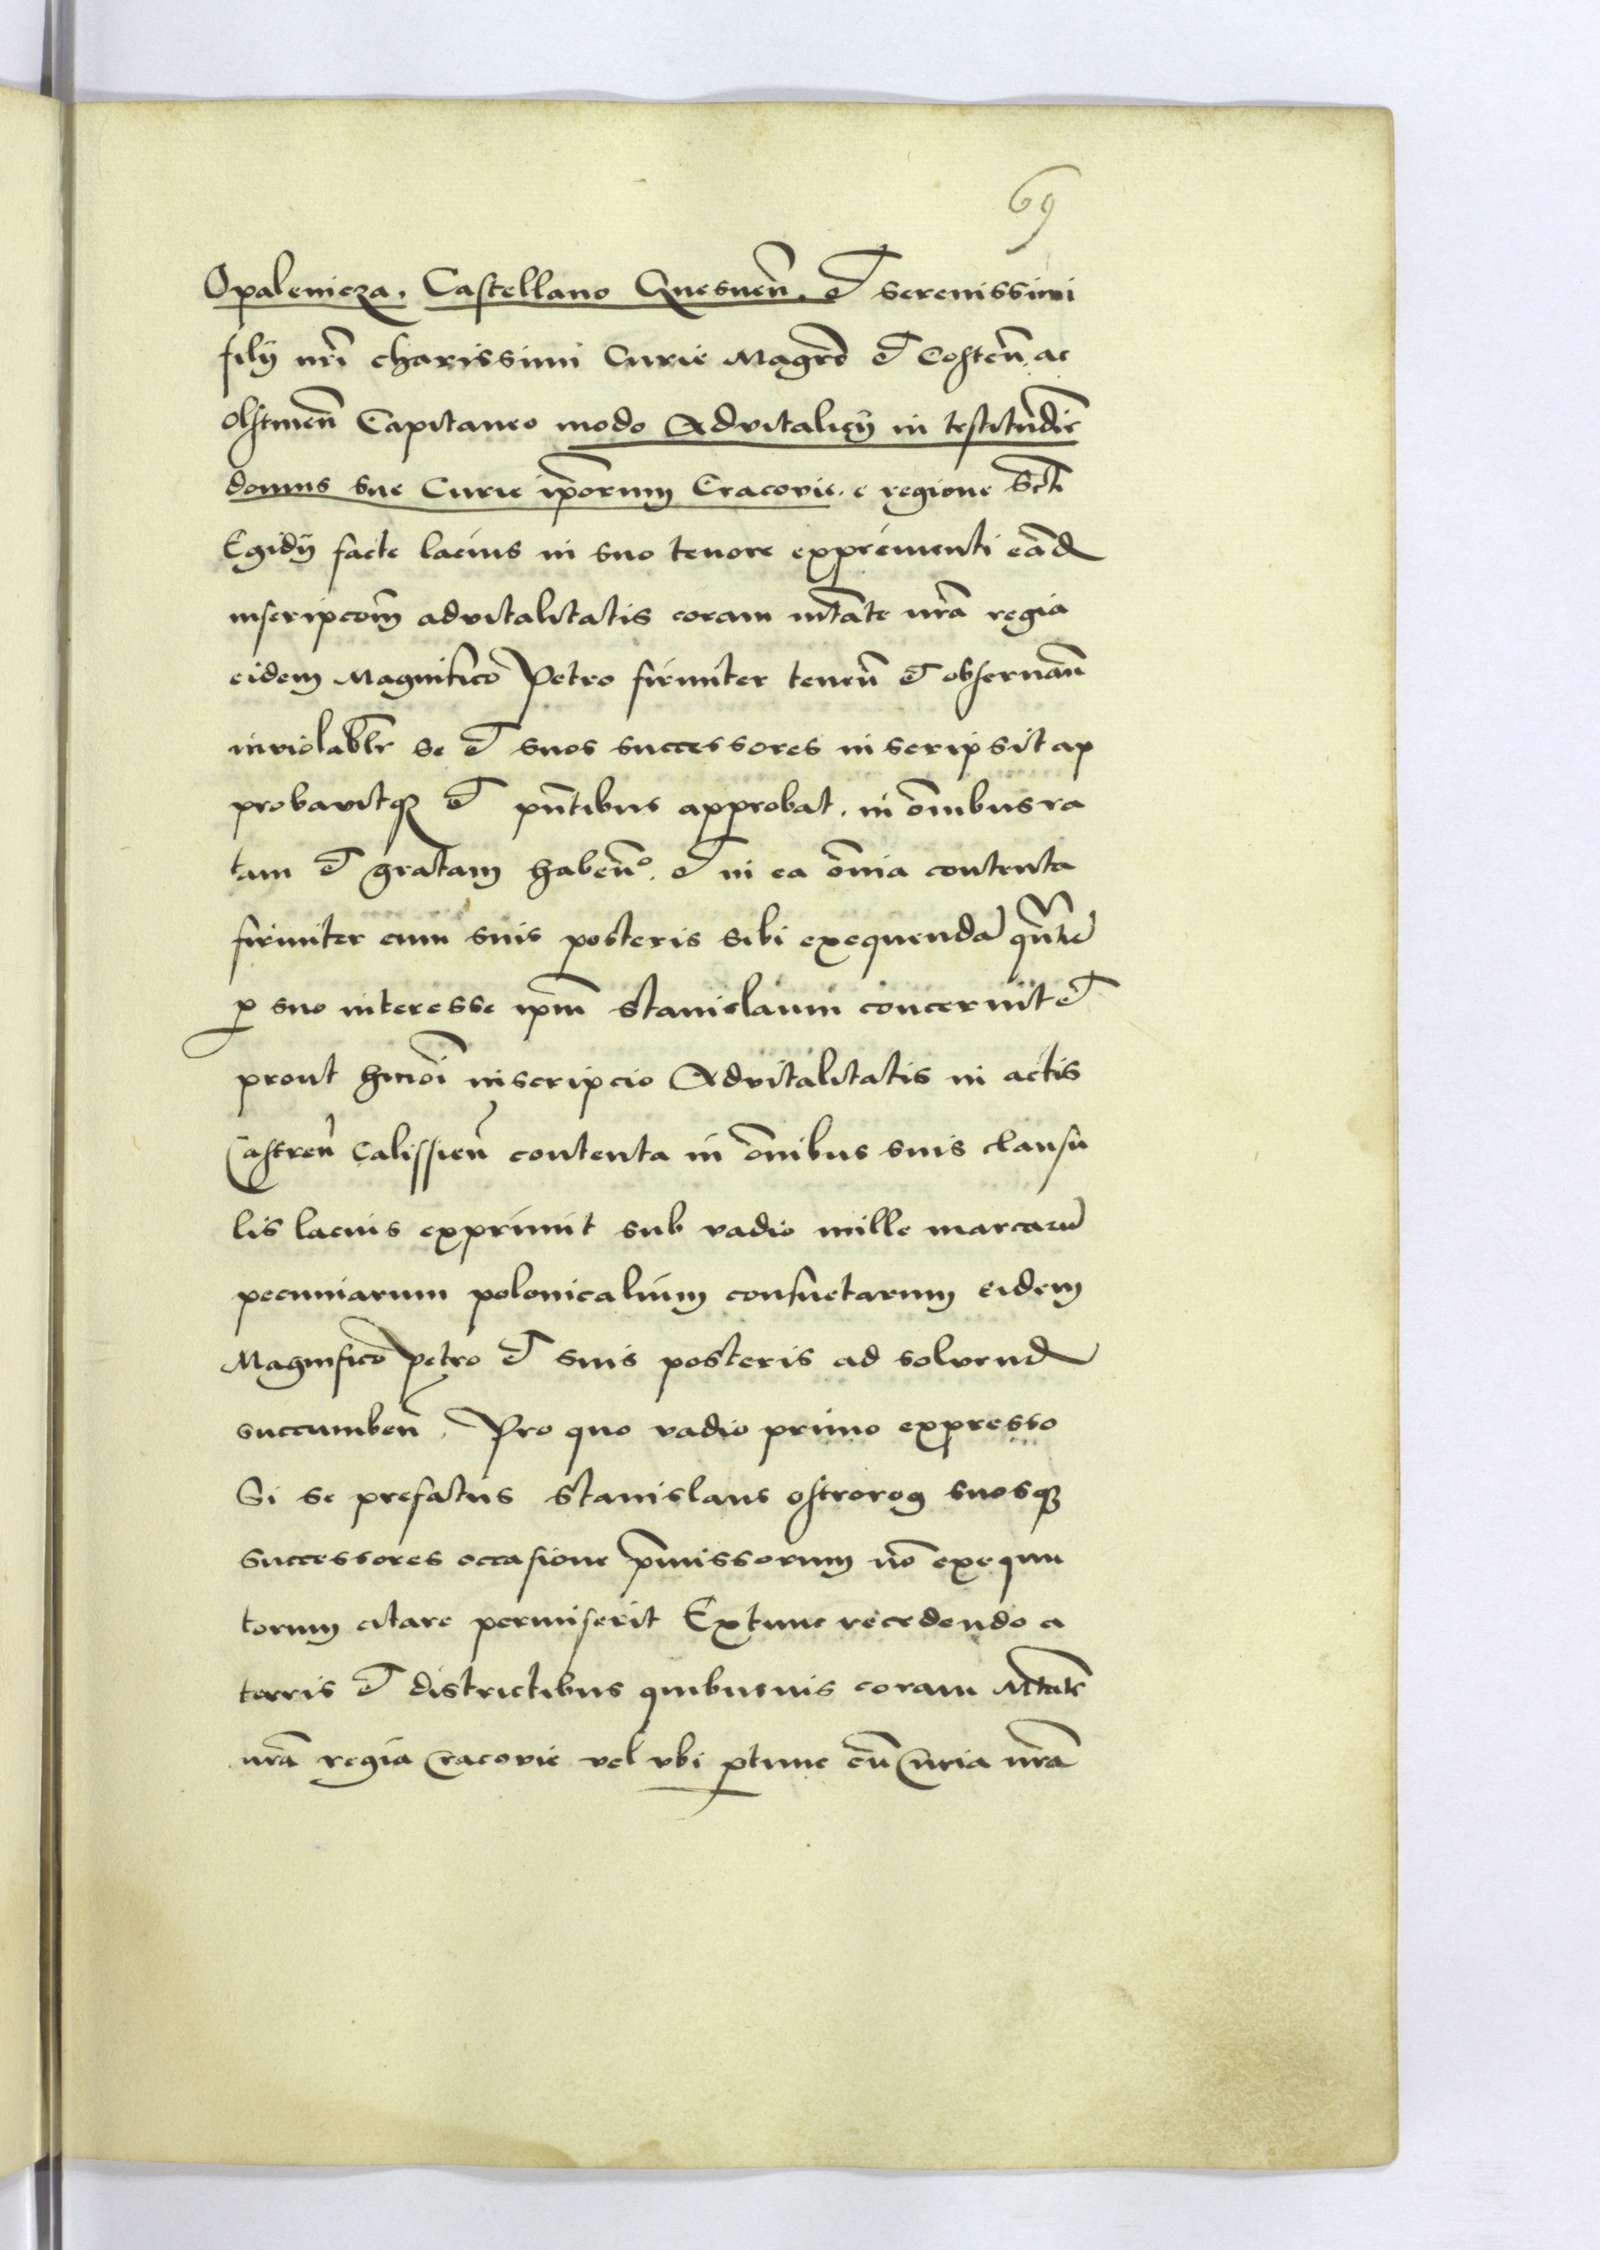 69
Opalenicza. Castellano Gnesnen̄. et serenissimi
filij nr̄i charissimi Curie Magr̄o et Costen̄. ac
Olstinen̄ Capitaneo modo Advitalicij in testitudīe
domus sue Curie ip̄orum Cracovie. e regione Sctī
Egidij facte lacius in suo tenore exprimenti eād
inscripcōm advitalitatis coram mtāte nr̄a regia
eidem Magnifico Petro firmiter tenen̄ et observān
inviolablr̄ se et suos successores inscripsit ap
probavitqʒ et pn̄tibus approbat. in om̄ibus ra
tam et gratam haben̄o. et in ea om̄ia contenta
firmiter cum suis posteris sibi exequenda
p suo interesse ip̄m Stanislaum concernit et
prout hmōi inscripcio Advitalitatis in actis
Castren̄ Calissien̄ contenta in om̄ibus suis clausu
lis lacius exprimit sub vadio mille marcarū
pecuniarum polonicalium consuetarum eidem
Magnifico Petro et suis posteris ad solvend
succumben̄. Pro quo vadio primo expresso
Si se prefatus Stanislaus Ostrorog suosqʒ
successores occasione p̄missorum nō exequu
torum citare permiserit Extunc recedendo a
terris et districtibus quibusuis coram Mtate
nr̄a regia Cracovie vel vbi ptunc cū Curia nr̄a